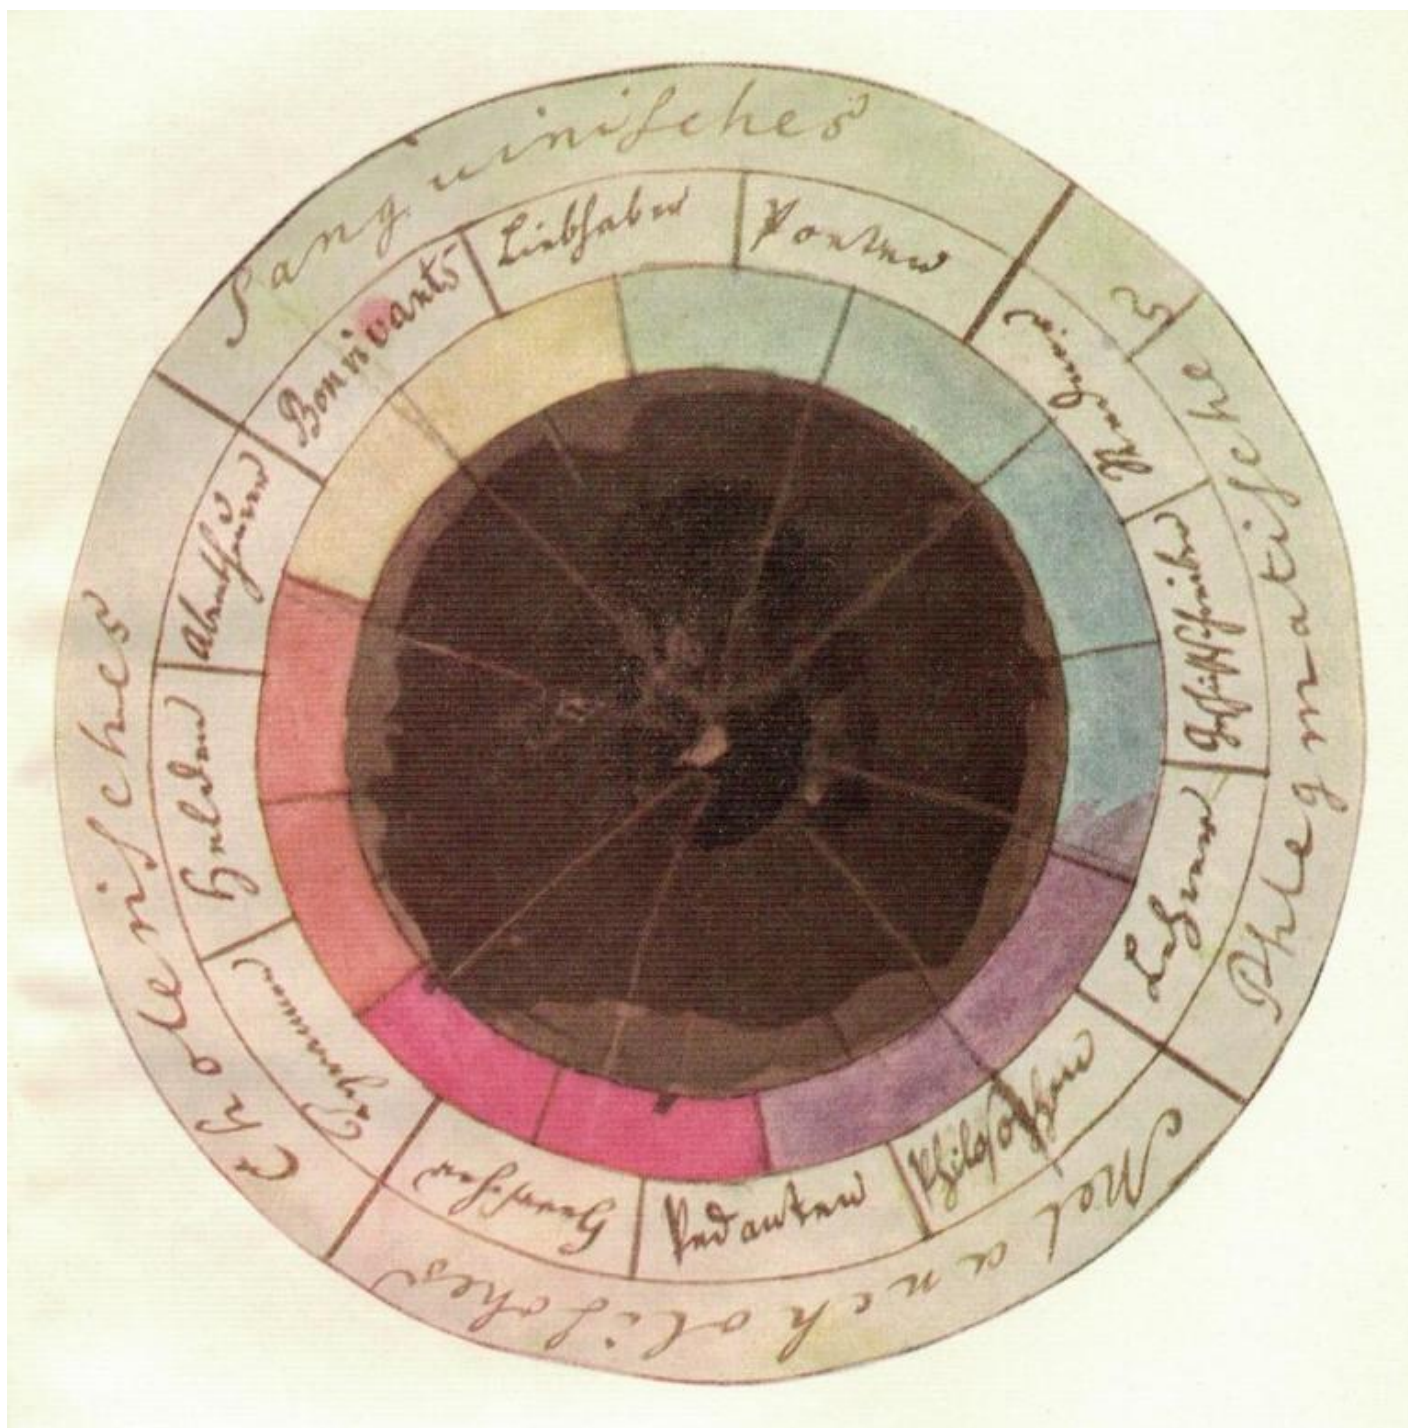 Sanguinisches
Phlegmatisches
Melancholisches
Cholerisches
Liebhaber
Poeten
Redner
Geschichtschreiber
Lehrer
Philosophen
Pedanten
Herrscher
Tyrannen
Helden
Abentheurer
Bonvivants